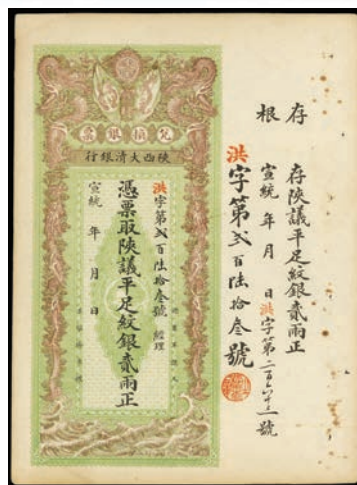 存根
存陝議平足紋銀貳兩正
宣統 年 月 日 洪字第二百六十三號
洪字第弍百陸拾叁號
兌換銀票
陝西大清銀行
洪字第弍百陸拾叁號 經理
憑票取陝議平足紋銀貳兩正
宣統 年 月 日